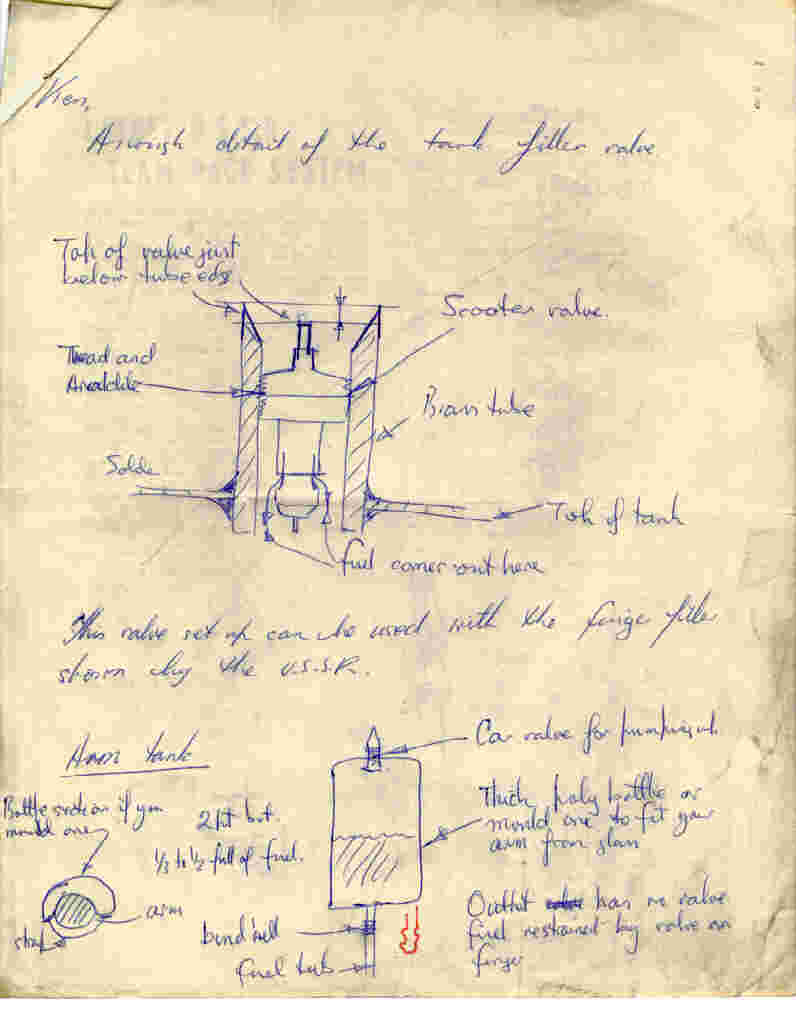 Ken,
A rough detail of the tank filler valve
Top of valve just
below tube edge
Scooter valve.
Thread and
Araldite
Brass tube
Solder
Top of tank
fuel comes out here
This valve set up can be used with the finger filler
shown by the U.S.S.R.
Arm tank
Car valve for pumping up
Bottle section if you
mould one
2 pt bot.
1/3 to 1/2 full of fuel.
Thick poly bottle or
mould one to fit your
arm from glass
arm
strap
bind well
fuel tube
Outlet has no valve
fuel restrained by valve on
finger